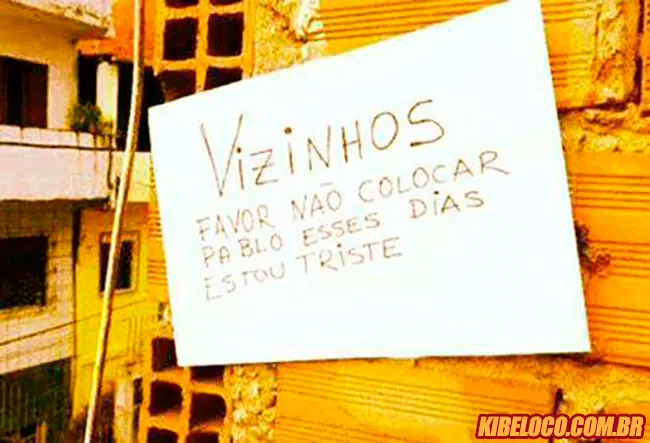 VIZINHOS
FAVOR NÃO COLOCAR
PABLO ESSES DIAS
ESTOU TRISTE
KIBELOCO.COM.BR